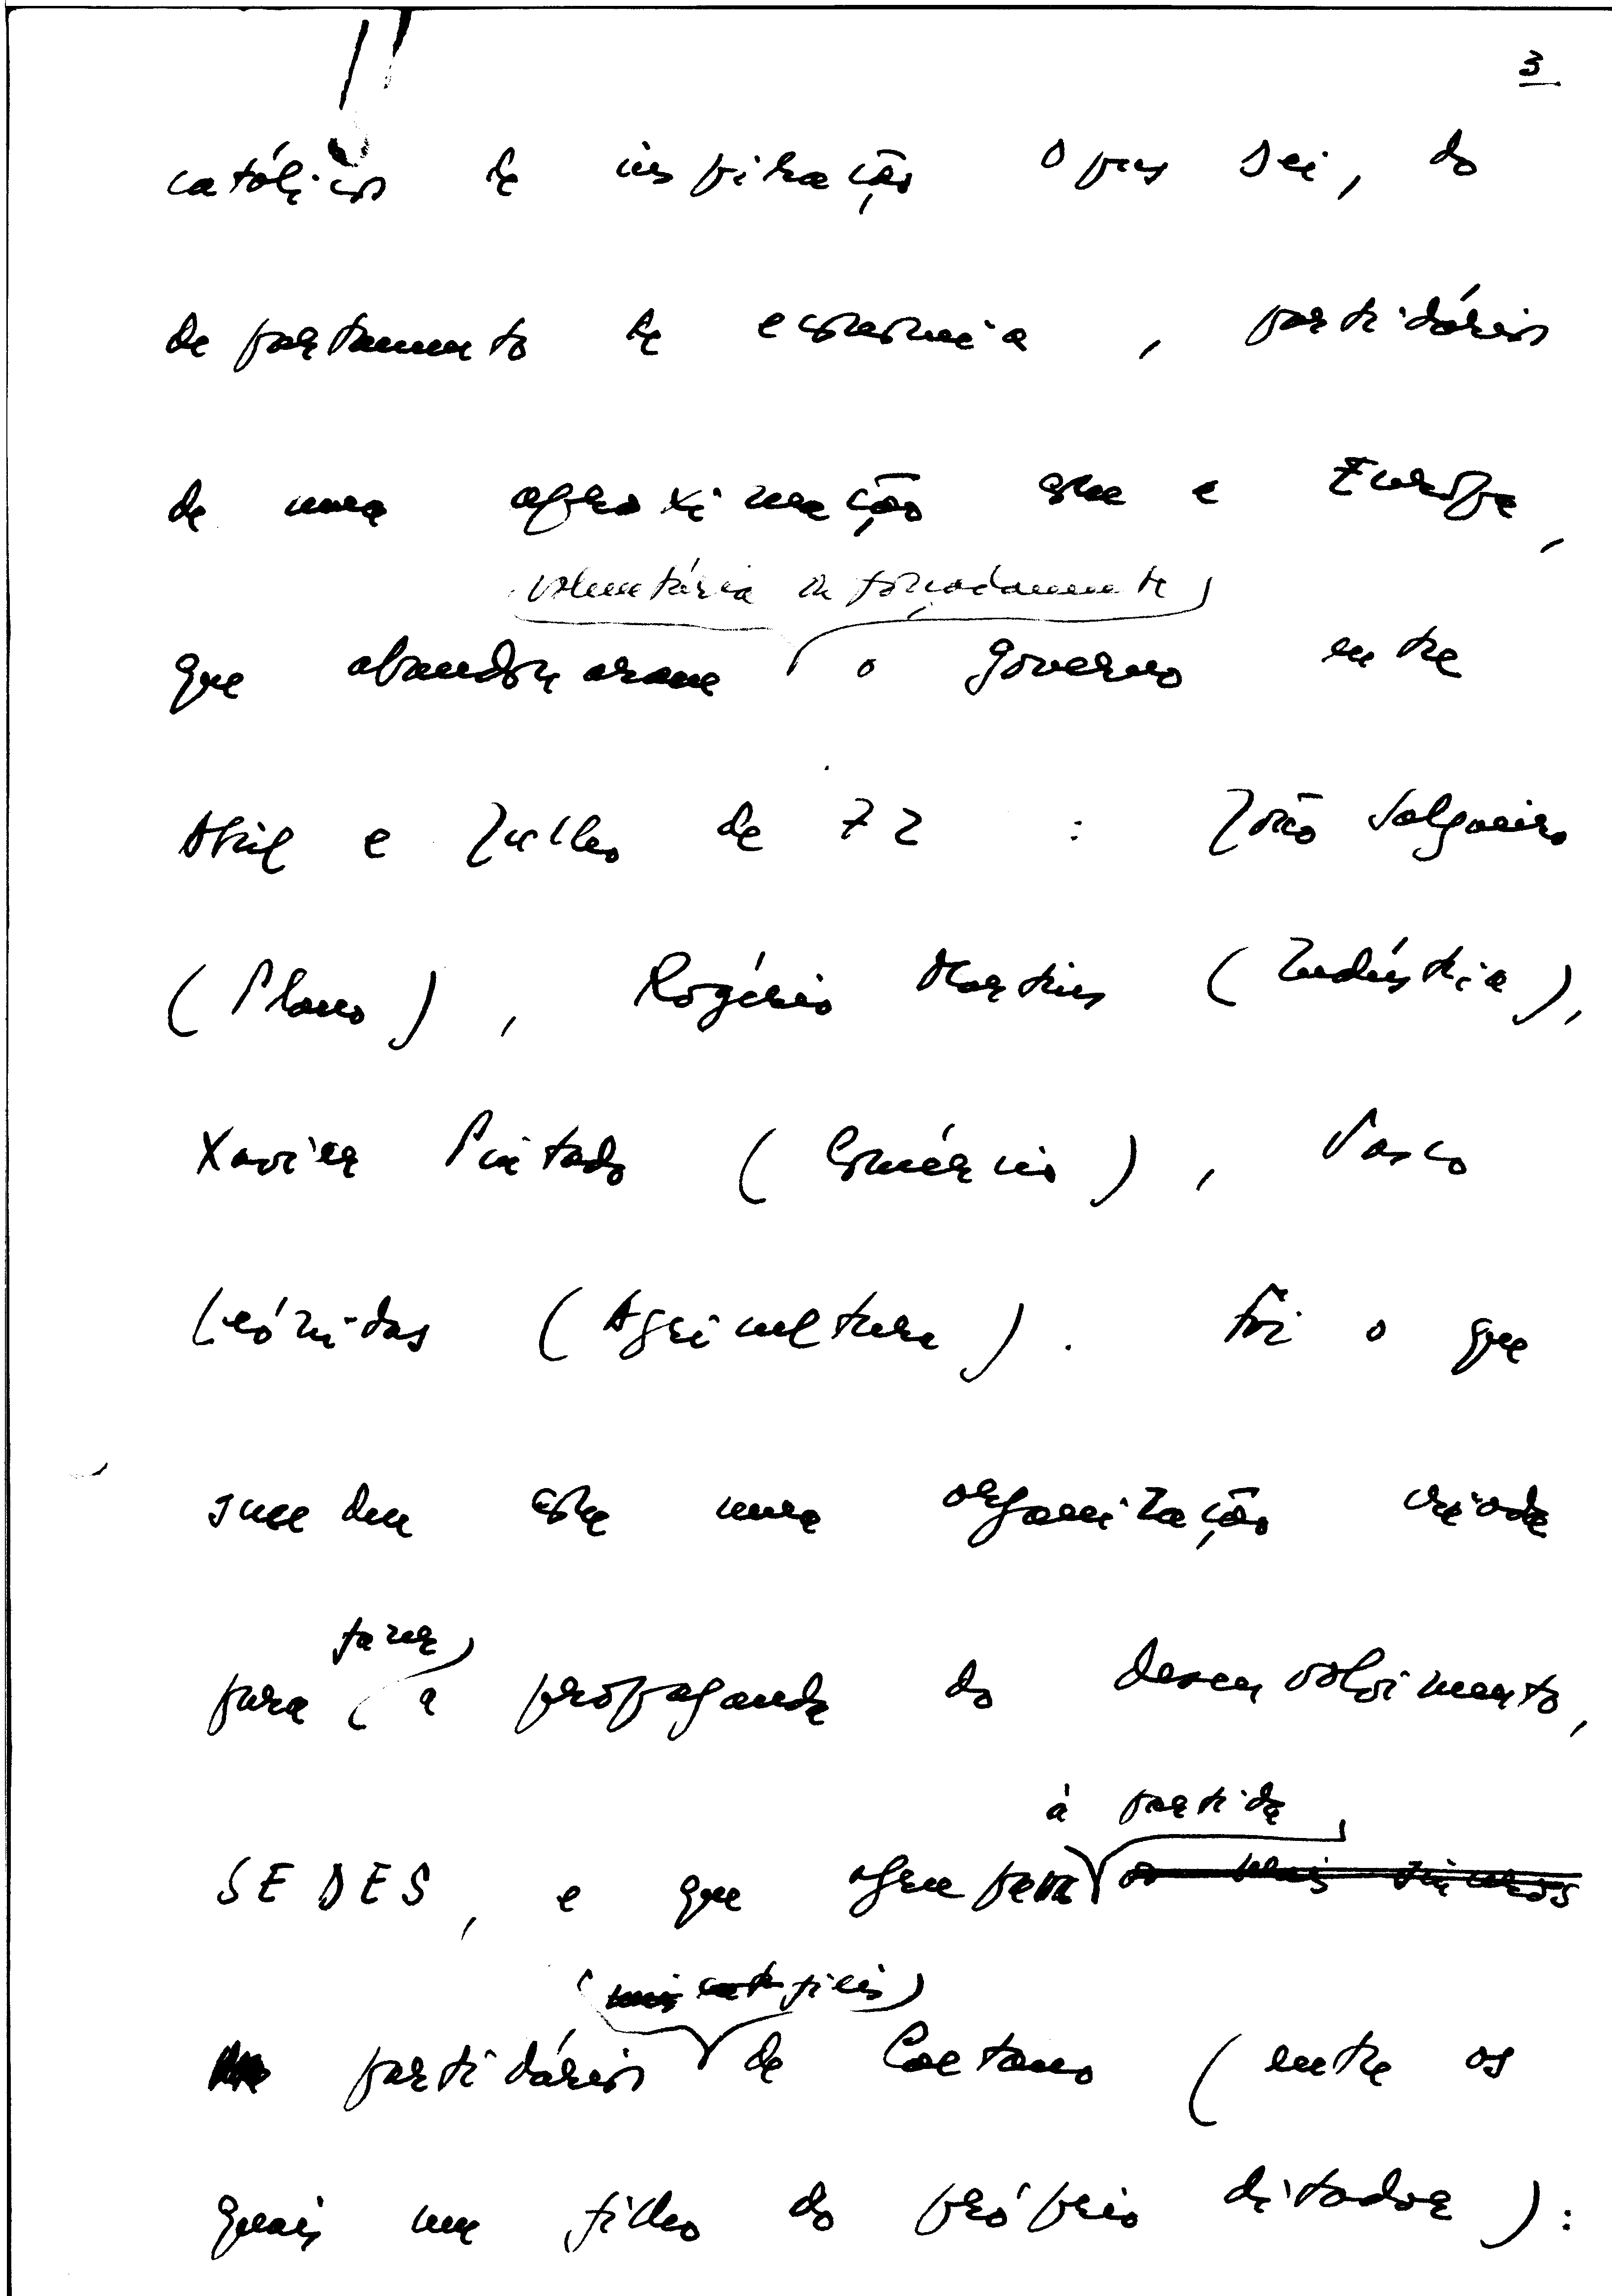 3
católicos de inspiração Opus Dei, do
departamento de economia, partidários
de uma aproximação com a Europa,
voluntária ou forçadamente
que abandonaram o governo entre
Abril e Julho de 72 : João Salgueiro
(Plano), Rogério Martins (Indústria),
Xavier Pintado (Comércio), Vasco
Leónidas (Agricultura). Foi o que
sucedeu com uma organização criada
fazer
para a propaganda do desenvolvimento,
à partida
SEDES, e que agrupava os mais sinceros
mais fiéis
partidários de Caetano (entre os
quais um filho do próprio ditador):